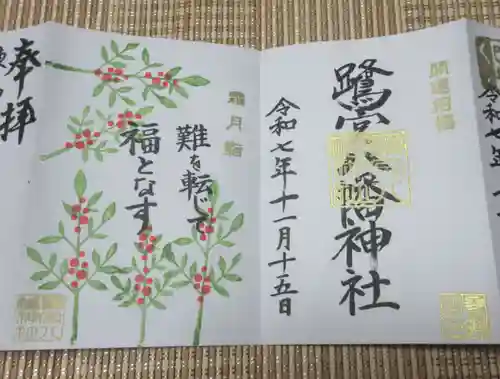 令和
開運招福
鷺宮八幡神社
令和七年十一月十五日
霜月詣
難を転じて
福となす
奉拝